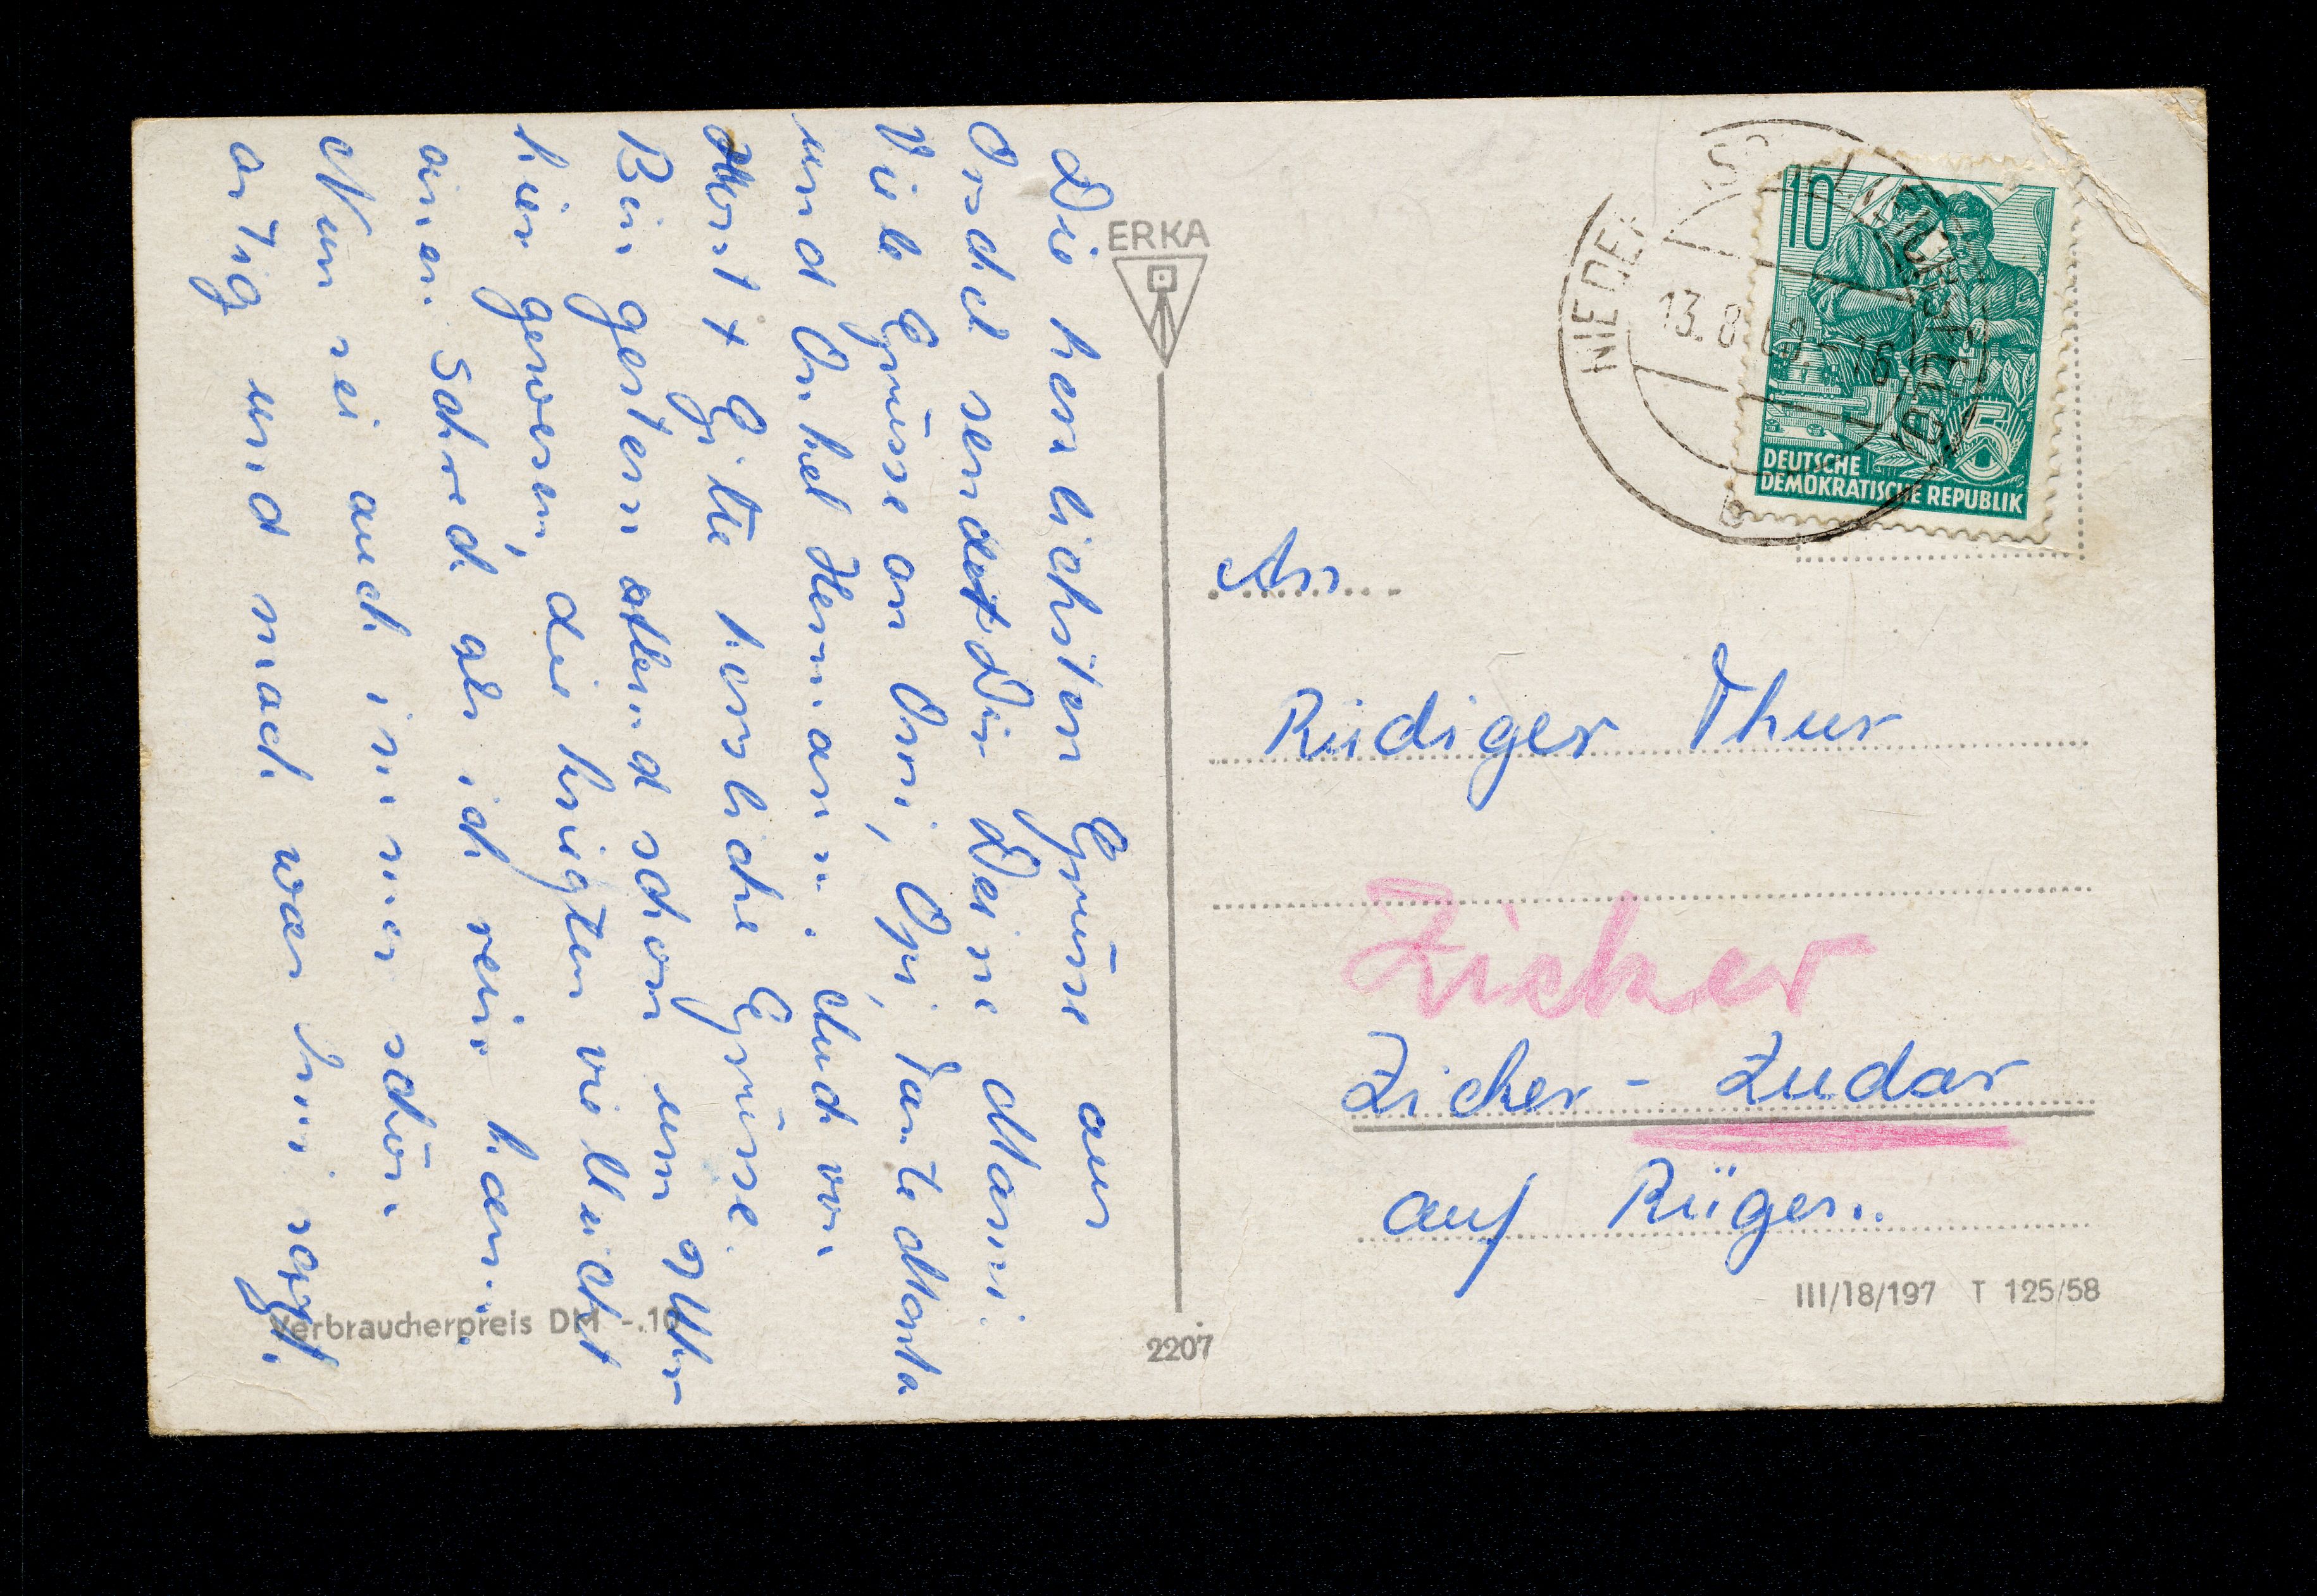 Die herzlichsten Grüsse aus
sendet Dir Deine Mami.
Viele Grüsse an Omi, Opi, Tante Marta
und Onkel Hermann. Auch von
Horst + Gitte herzliche Grüsse.
Bin gestern abend schon um
hier gewesen, die kriegten vielleicht
einen Schreck als ich rein kam.
Nun sei auch immer schön
artig und mach was Omi sagt.
ERKA
13.8.
10
5
DEUTSCHE
DEMOKRATISCHE REPUBLIK
An
Rüdiger Thur
Zicker
Zicker - Zudar
auf Rügen.
III/18/197 T 125/58
Verbraucherpreis DM -.10
2207